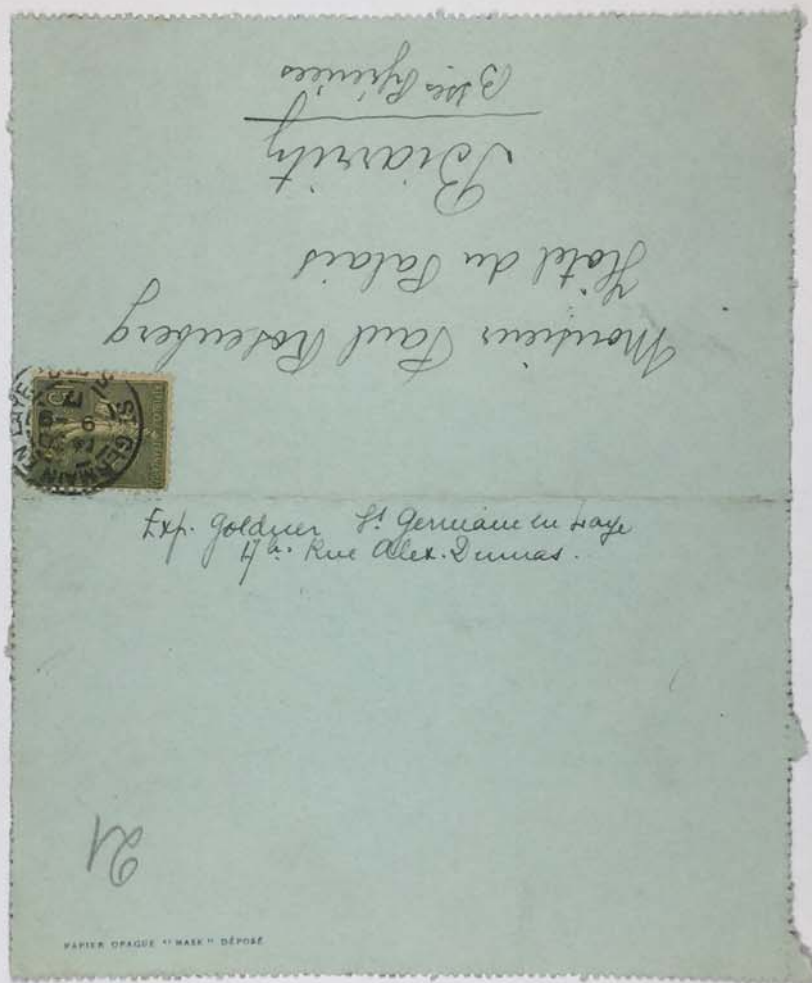 Monsieur Paul Rosenberg
Hôtel du Palais
Biarritz
Bsses Pyrénées
ST GERMAIN EN LAYE
Exp. Goldner St Germain en Laye
Rue Alex. Dumas.
21
PAPIER OPAQUE "MASK" DÉPOSÉ